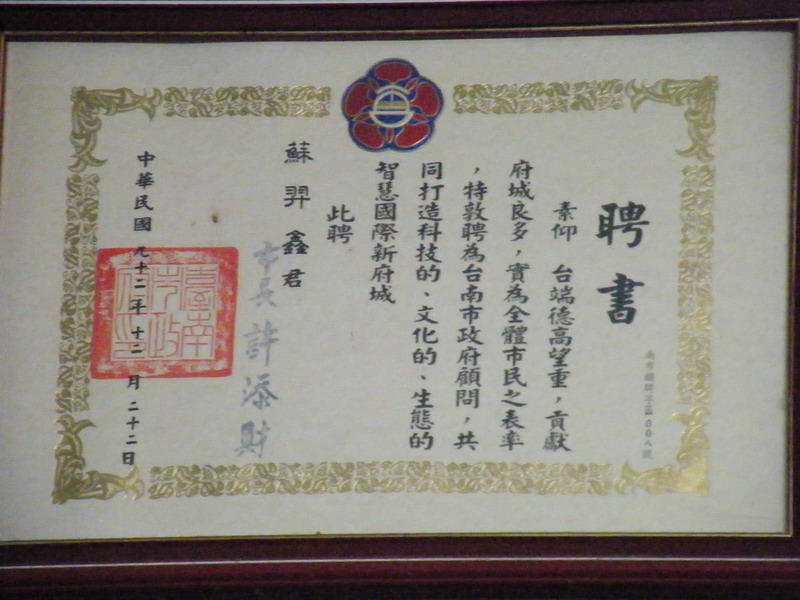 聘書
素仰　台端德高望重，貢獻
府城良多，實為全體市民之表率
，特敦聘為台南市政府顧問，共
同打造科技的、文化的、生態的
智慧國際新府城
此聘
蘇羿鑫君
市長許添財
中華民國九十二年十二月二十二日
臺南市政府印